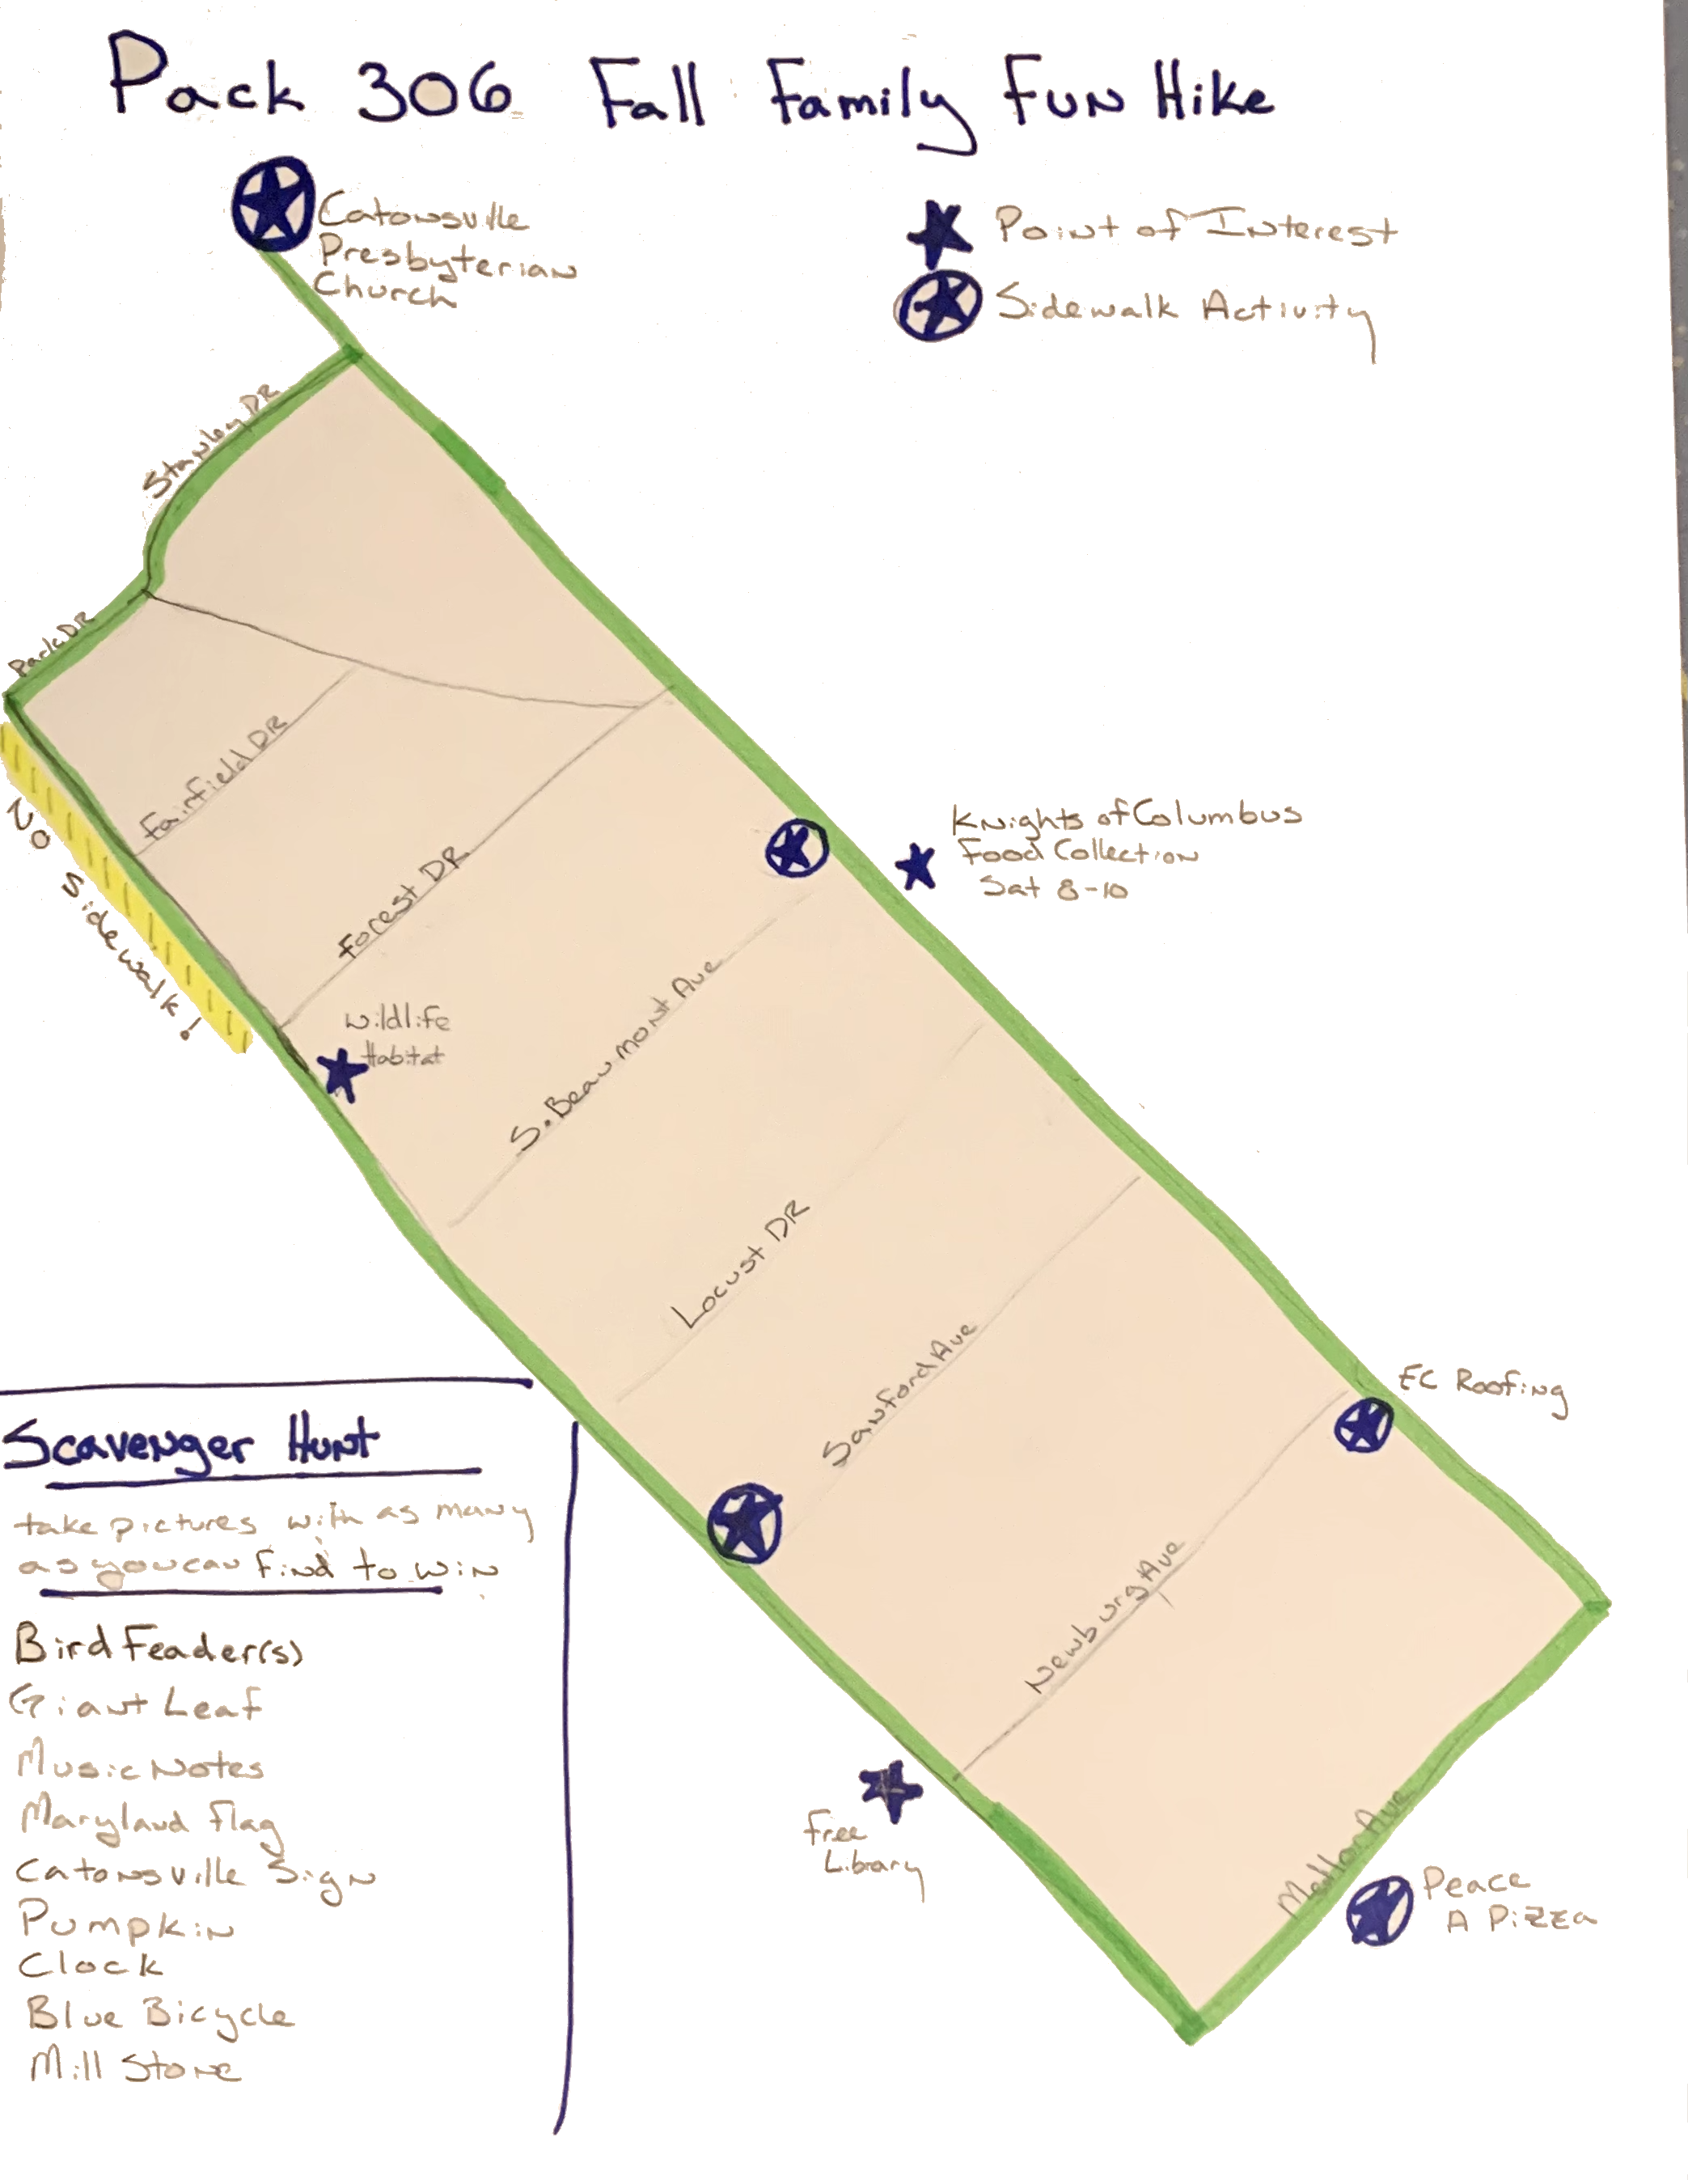 Pack 306 Fall Family Fun Hike
Catonsville
Presbyterian
Church
Point of Interest
Sidewalk Activity
Stanley DR
Park DR
Fairfield DR
No Sidewalk!
Forest DR
Knights of Columbus
Food Collection
Sat 8-10
Wildlife
Habitat
S. Beaumont Ave
Locust DR
Sanford Ave
EC Roofing
Newburg Ave
Free
Library
Mellor Ave
Peace
A Pizza
Scavenger Hunt
take pictures with as many
as you can find to win
Bird Feader(s)
Giant Leaf
Music Notes
Maryland Flag
Catonsville Sign
Pumpkin
Clock
Blue Bicycle
Mill Stone